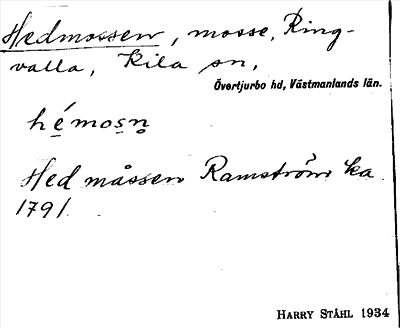 Hedmossen, mosse, Ring-
valla, Kila sn,
Övertjurbo hd, Västmanlands län.
hé̠mos̠n̥
Hed måssen Ramström ka
1791
HARRY STÅHL 1934